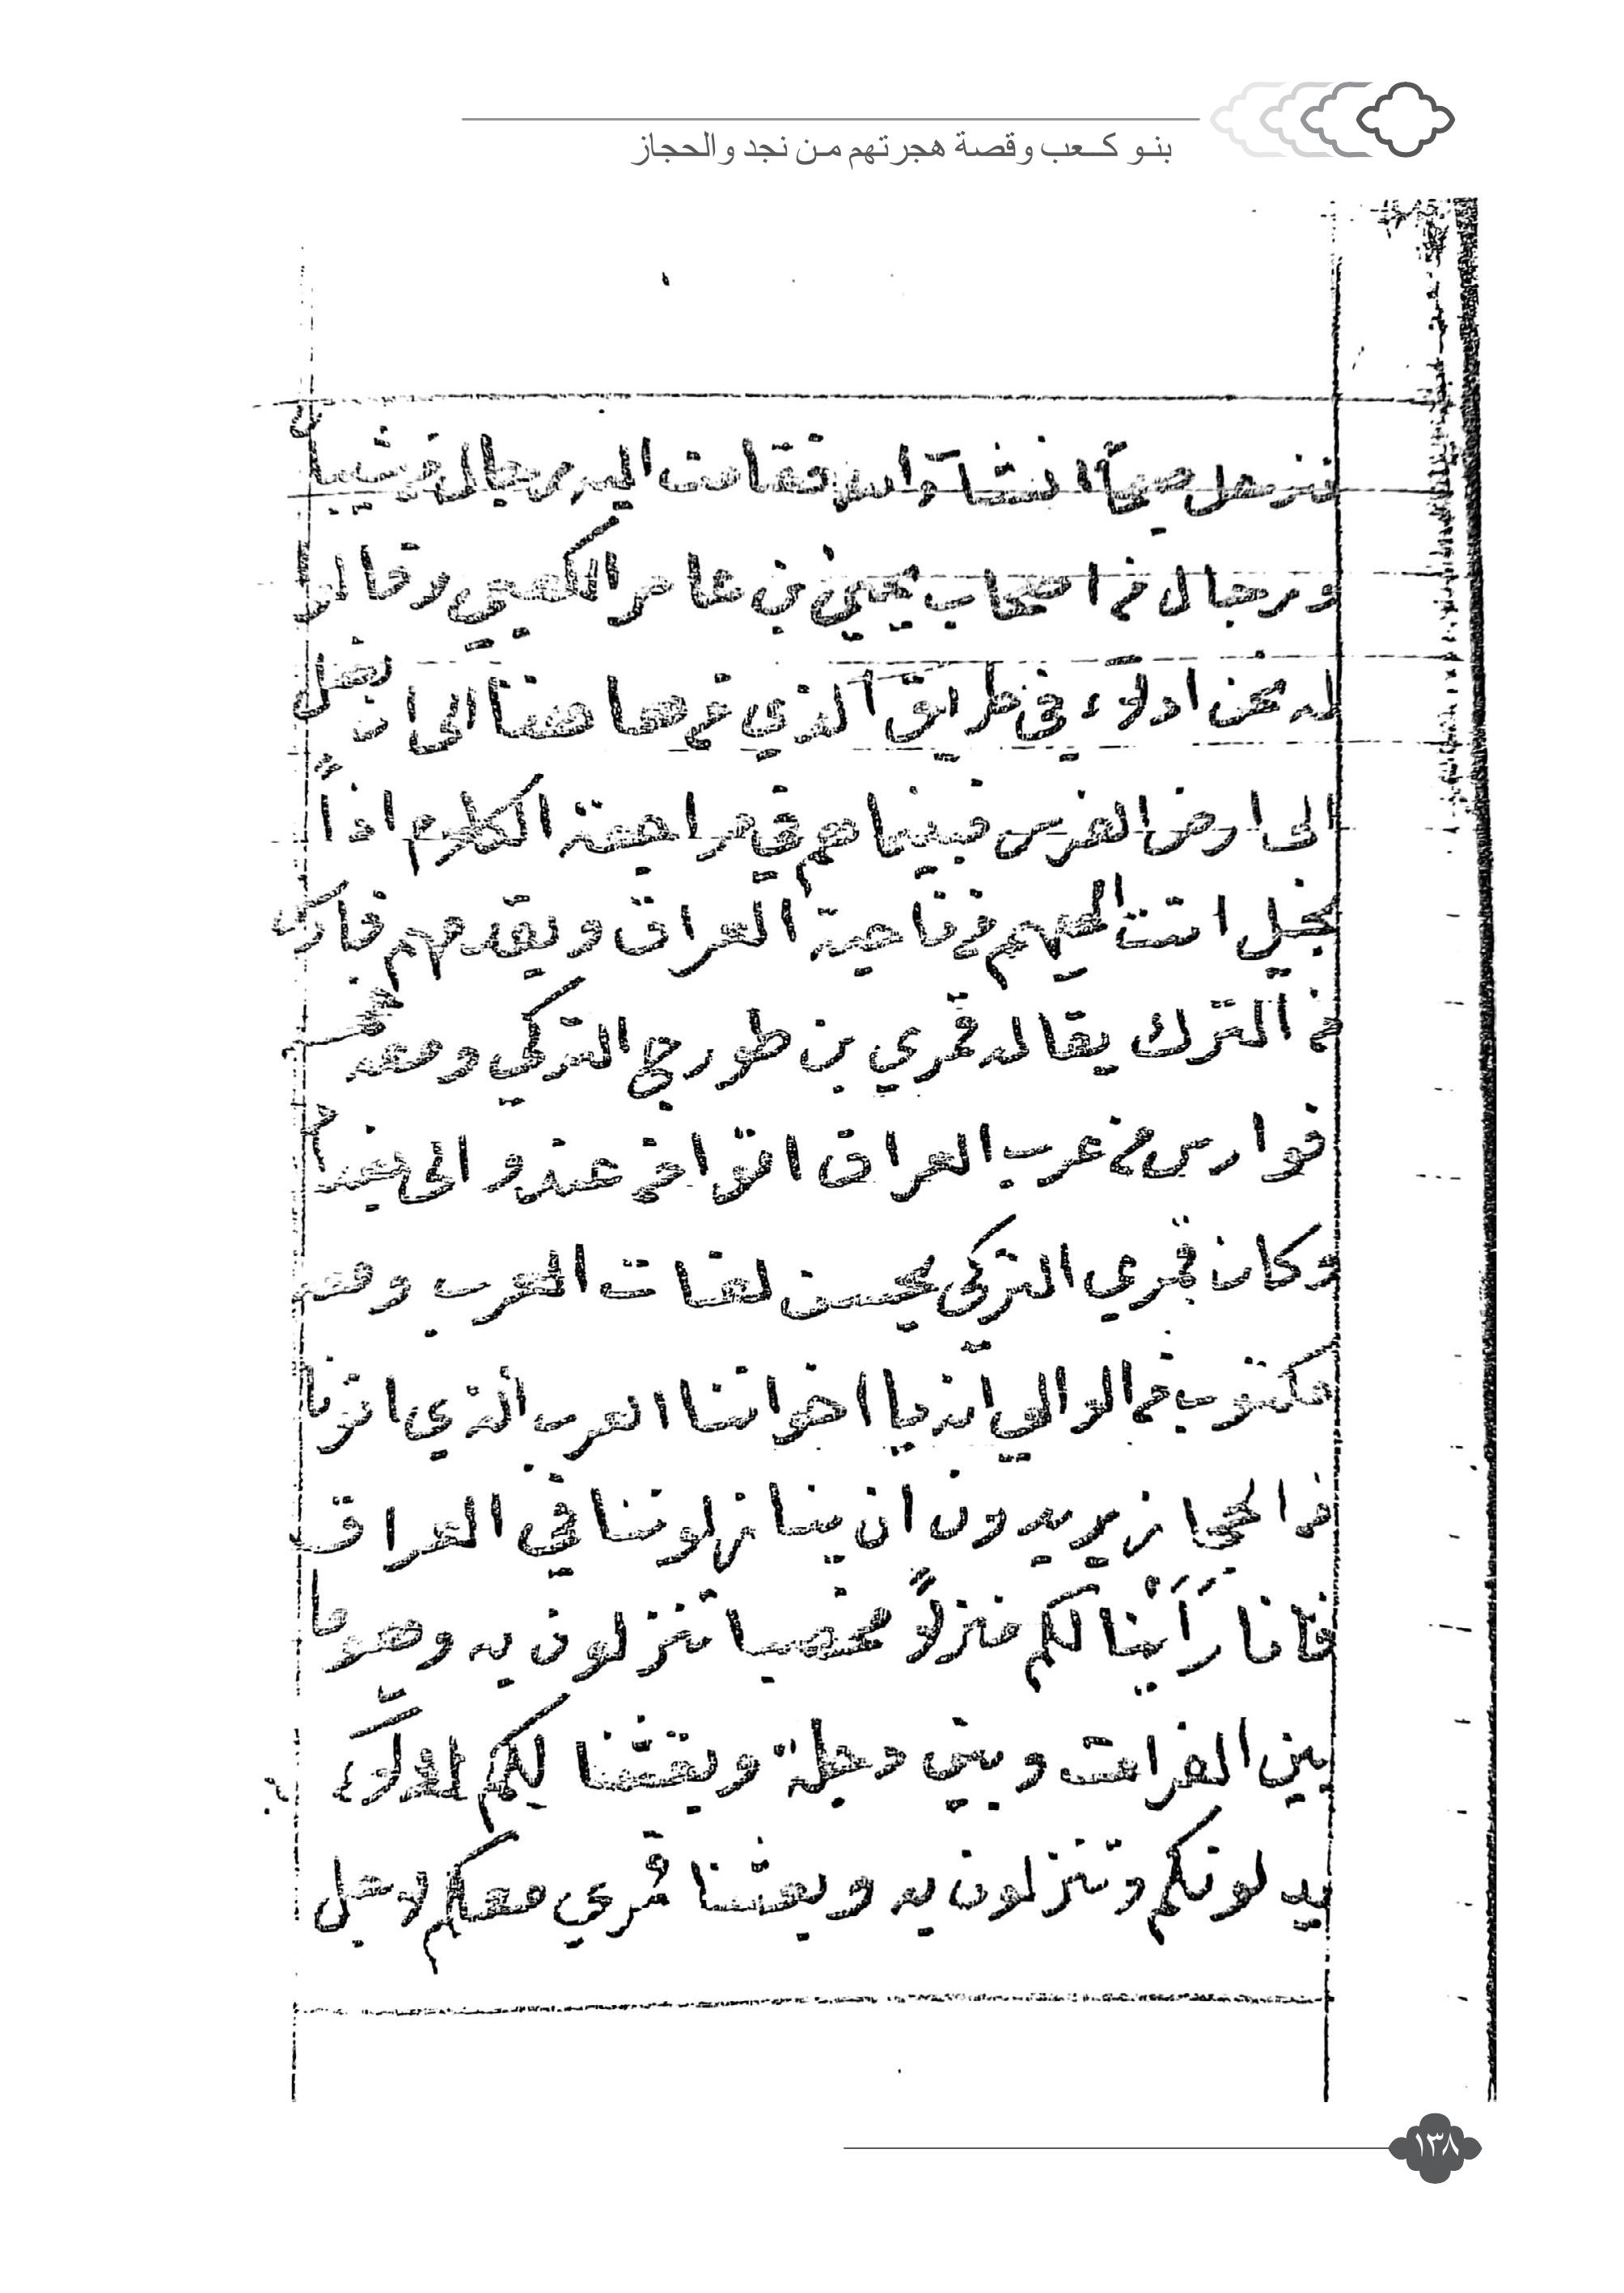 بنو كعب وقصة هجرتهم من نجد والحجاز
ننزحل صبحاً انشآء الله فقامت اليه رجال من شيبان
ورجال من اصحاب يحيى بن عامر الكعبي وقالو
له نحن ادلآء في طريق الذي من هاهنا الى ان نصل
الى ارض الفرس فبينما هم في مراجعة الكلام اذاً
بخيل اتت اليهم من ناحية العراق ويقدمهم فارس
من الترك يقاله قمري بن طورجي التركي ومعه
فوارس من عرب العراق اتوا من عند والى بغداد
وكان قمري التركي يحسن لغات العرب ومعه
مكتوب من الوالي انه يا اخواننا العرب الذي اتونا
من الحجاز يريدون ان ينازلوننا في العراق
فانا رَأَيْنا لكم منزلاً مخصبا تنزلون به وهو ما
بين الفرات وبين دجلة وبعثنا لكم ادلّآء
يدلونكم وتنزلون به وبعثنا قمري معكم لاجل
١٣٨